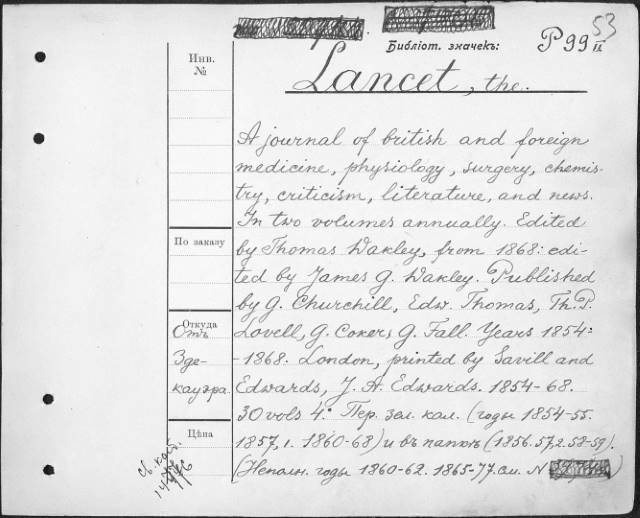 Библіот. значекъ:
P 99 53
II
Инв.
№
Lancet, the.
A journal of british and foreign
medicine, physiology, surgery, chemis-
try, criticism, literature, and news.
In two volumes annually. Edited
by Thomas Wakley, from 1868: edi-
ted by James G. Wakley. Published
by G. Churchill, Edw. Thomas, Th. P.
Lovell, G. Coker, G. Fall. Years 1854:
-1868. London, printed by Savill and
Edwards, J. A. Edwards. 1854-68.
30 vols 4.° Пер. зел. кал. (годы 1854-55.
1857,1. 1860-68) и въ папкѣ (1856.57,2.58-59).
(Неполн. годы 1860-62. 1865-77. см. №
По заказу
Откуда
Отъ
Зде-
кауэра.
Цѣна